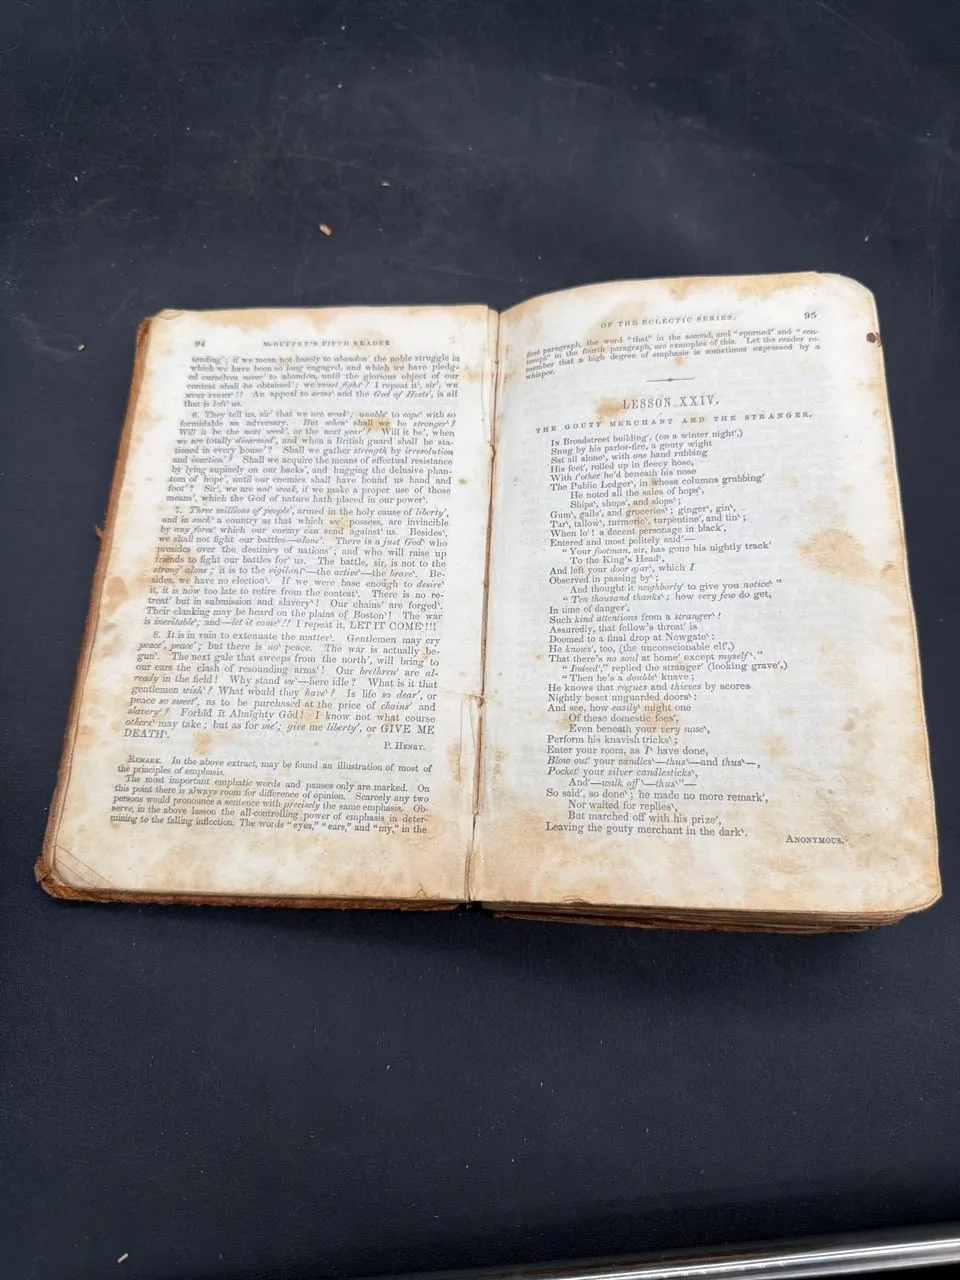 94 McGUFFEY'S FIFTH READER
tending'; if we mean not basely to abandon' the noble struggle in
which we have been so long engaged, and which we have pledg-
ed ourselves never' to abandon, until the glorious object of our
contest shall be obtained'; we must fight'! I repeat it, sir', we
MUST FIGHT'!! An appeal to arms' and the God of Hosts', is all
that is left' us.
6. They tell us, sir' that we are weak'; unable' to cope' with so
formidable an adversary. But when' shall we be stronger'?
Will it be the next week', or the next year'? Will it be', when
we are totally disarmed', and when a British guard shall be sta-
tioned in every house'? Shall we gather strength by irresolution
and inaction'? Shall we acquire the means of effectual resistance
by lying supinely on our backs', and hugging the delusive phan-
tom of hope', until our enemies shall have bound us hand and
foot'? Sir', we are not' weak, if we make a proper use of those
means', which the God of nature hath placed in our power'.
7. Three millions of people', armed in the holy cause of liberty',
and in such' a country as that which we' possess, are invincible
by any force' which our enemy can send against' us. Besides',
we shall not fight our battles—alone'. There is a just God' who
presides over the destinies of nations'; and who will raise up
friends to fight our battles for' us. The battle, sir, is not to the
strong' alone; it is to the vigilant'—the active'—the brave'. Be-
sides, we have no election'. If we were base enough to desire'
it, it is now too late to retire from the contest'. There is no re-
treat' but in submission and slavery'! Our chains' are forged'.
Their clanking may be heard on the plains of Boston'! The war
is inevitable'; and—let it come'!! I repeat it, LET IT COME'!!!
8. It is in vain to extenuate the matter'. Gentlemen may cry
peace', peace'; but there is no' peace. The war is actually be-
gun'. The next gale that sweeps from the north', will bring to
our ears the clash of resounding arms'! Our brethren' are al-
ready in the field! Why stand we'—here idle? What is it that
gentlemen wish'? What would they have'? Is life so dear', or
peace so sweet', as to be purchased at the price of chains' and
slavery'? Forbid it Almighty Gŏd! I know not what course
others' may take; but as for me'; give me liberty', or GIVE ME
DEATH'.
P. HENRY.
REMARK. In the above extract, may be found an illustration of most of
the principles of emphasis.
The most important emphatic words and pauses only are marked. On
this point there is always room for difference of opinion. Scarcely any two
persons would pronounce a sentence with precisely the same emphasis. Ob-
serve, in the above lesson the all-controlling power of emphasis in deter-
mining to the falling inflection. The words "eyes," "ears," and "my," in the
OF THE ECLECTIC SERIES. 95
first paragraph, the word "that" in the second, and "spurned" and "con-
tempt" in the fourth paragraph, are examples of this. Let the reader re-
member that a high degree of emphasis is sometimes expressed by a
whisper.
LESSON XXIV.
THE GOUTY MERCHANT AND THE STRANGER.
IN Broadstreet building', (on a winter night',)
Snug by his parlor-fire, a gouty wight
Sat all alone', with one hand rubbing
His feet', rolled up in fleecy hose,
With t'other he'd beneath his nose
The Public Ledger', in whose columns grubbing'
He noted all the sales of hops',
Ships', shops', and slops';
Gum', galls', and groceries'; ginger', gin',
Tar', tallow', turmeric', turpentine', and tin';
When lo'! a decent personage in black',
Entered and most politely said'—
"Your footman, sir, has gone his nightly track'
To the King's Head',
And left your door ajar', which I
Observed in passing by';
And thought it neighborly' to give you notice'"
"Ten thousand thanks'; how very few do get,
In time of danger',
Such kind attentions from a stranger'!
Assuredly, that fellow's throat' is
Doomed to a final drop at Newgate':
He knows', too, (the unconscionable elf',)
That there's no soul at home' except myself'."
"Indeed'," replied the stranger' (looking grave',)
"Then he's a double' knave;
He knows that rogues and thieves by scores
Nightly beset unguarded doors':
And see, how easily' might one
Of these domestic foes',
Even beneath your very nose',
Perform his knavish tricks';
Enter your room, as I' have done,
Blow out' your candles'—thus'—and thus'—,
Pocket' your silver candlesticks',
And'—walk off'—thus'"—
So said', so done'; he made no more remark',
Nor waited for replies',
But marched off with his prize',
Leaving the gouty merchant in the dark'.
ANONYMOUS.